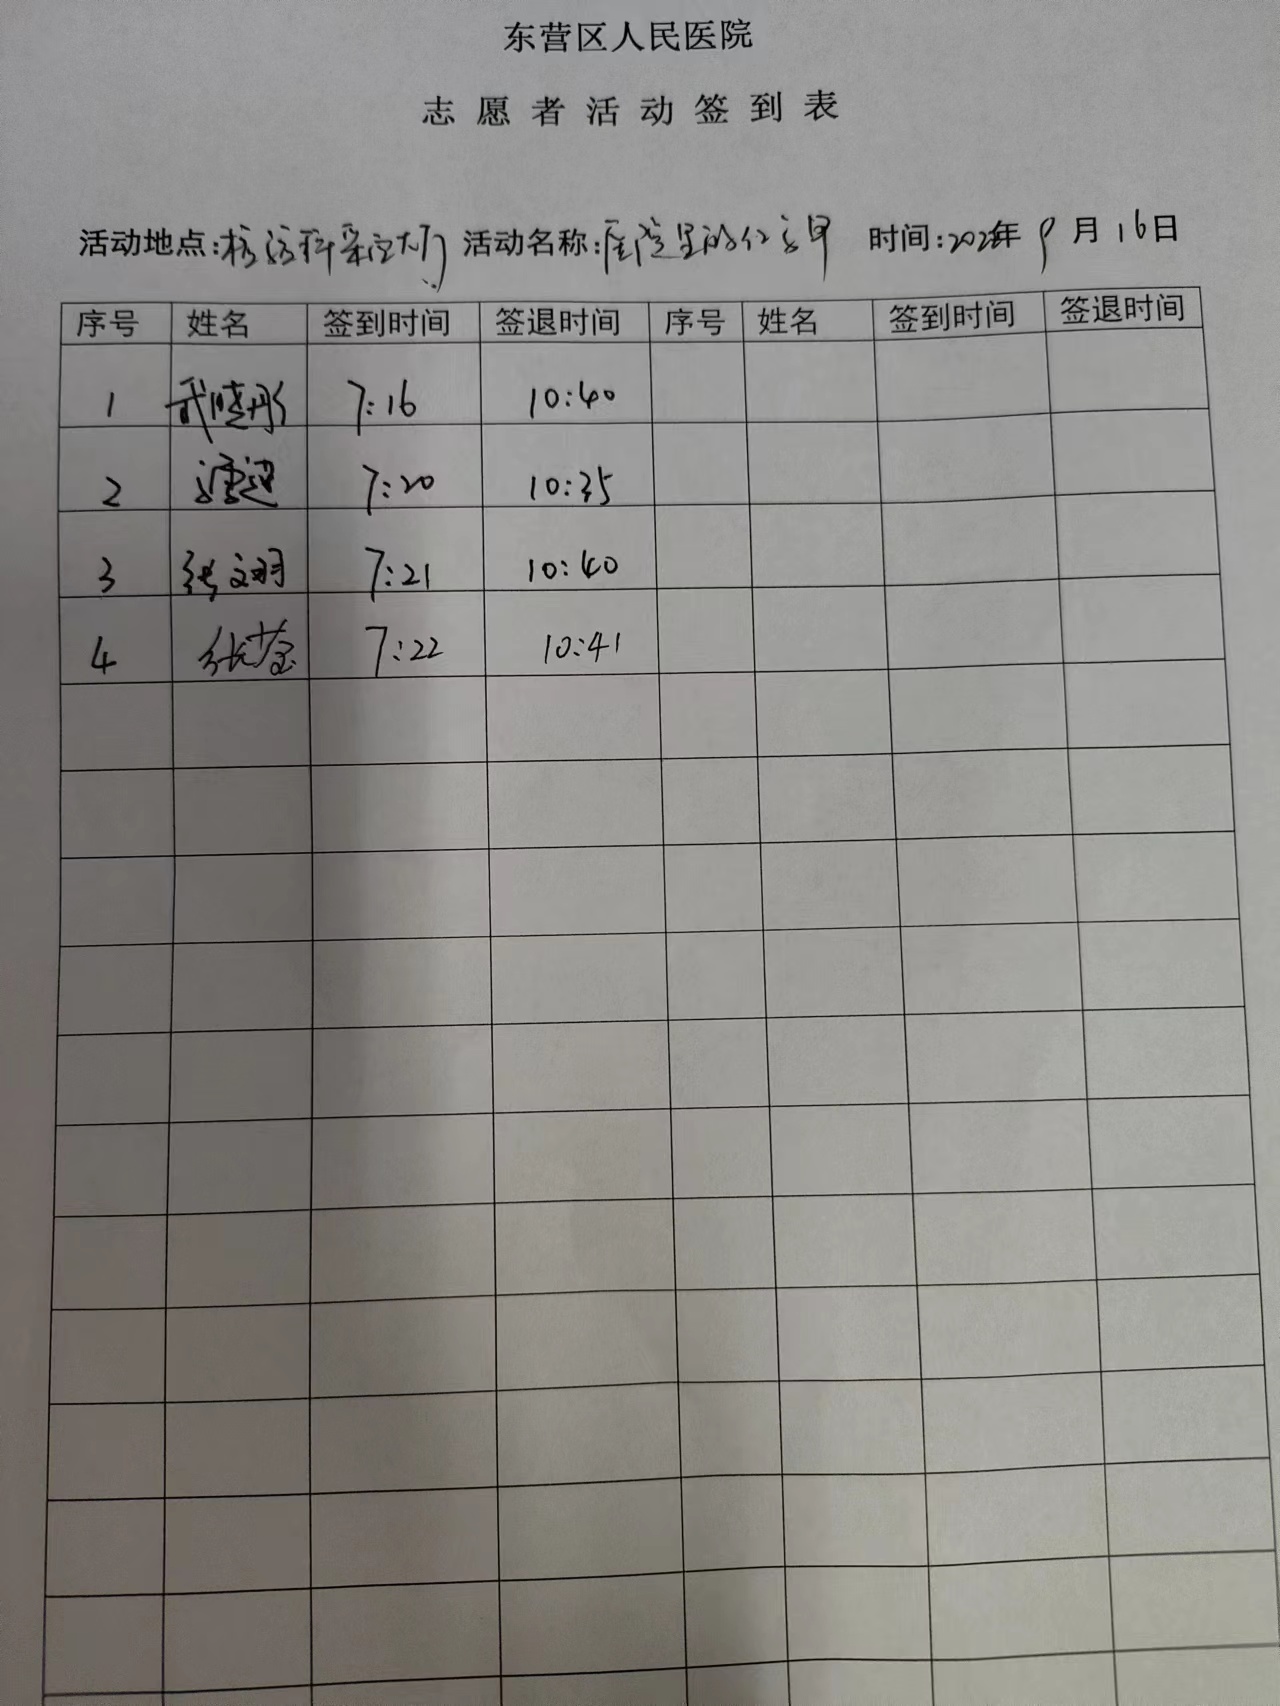 东营区人民医院
志愿者活动签到表
活动地点:检验科采血大厅 活动名称:医院里的红马甲 时间:202 年 9月16日
序号 姓名 签到时间 签退时间 序号 姓名 签到时间 签退时间
1 武晓彤 7:16 10:40
2 7:20 10:35
3 张文羽 7:21 10:40
4 张莹 7:22 10:41